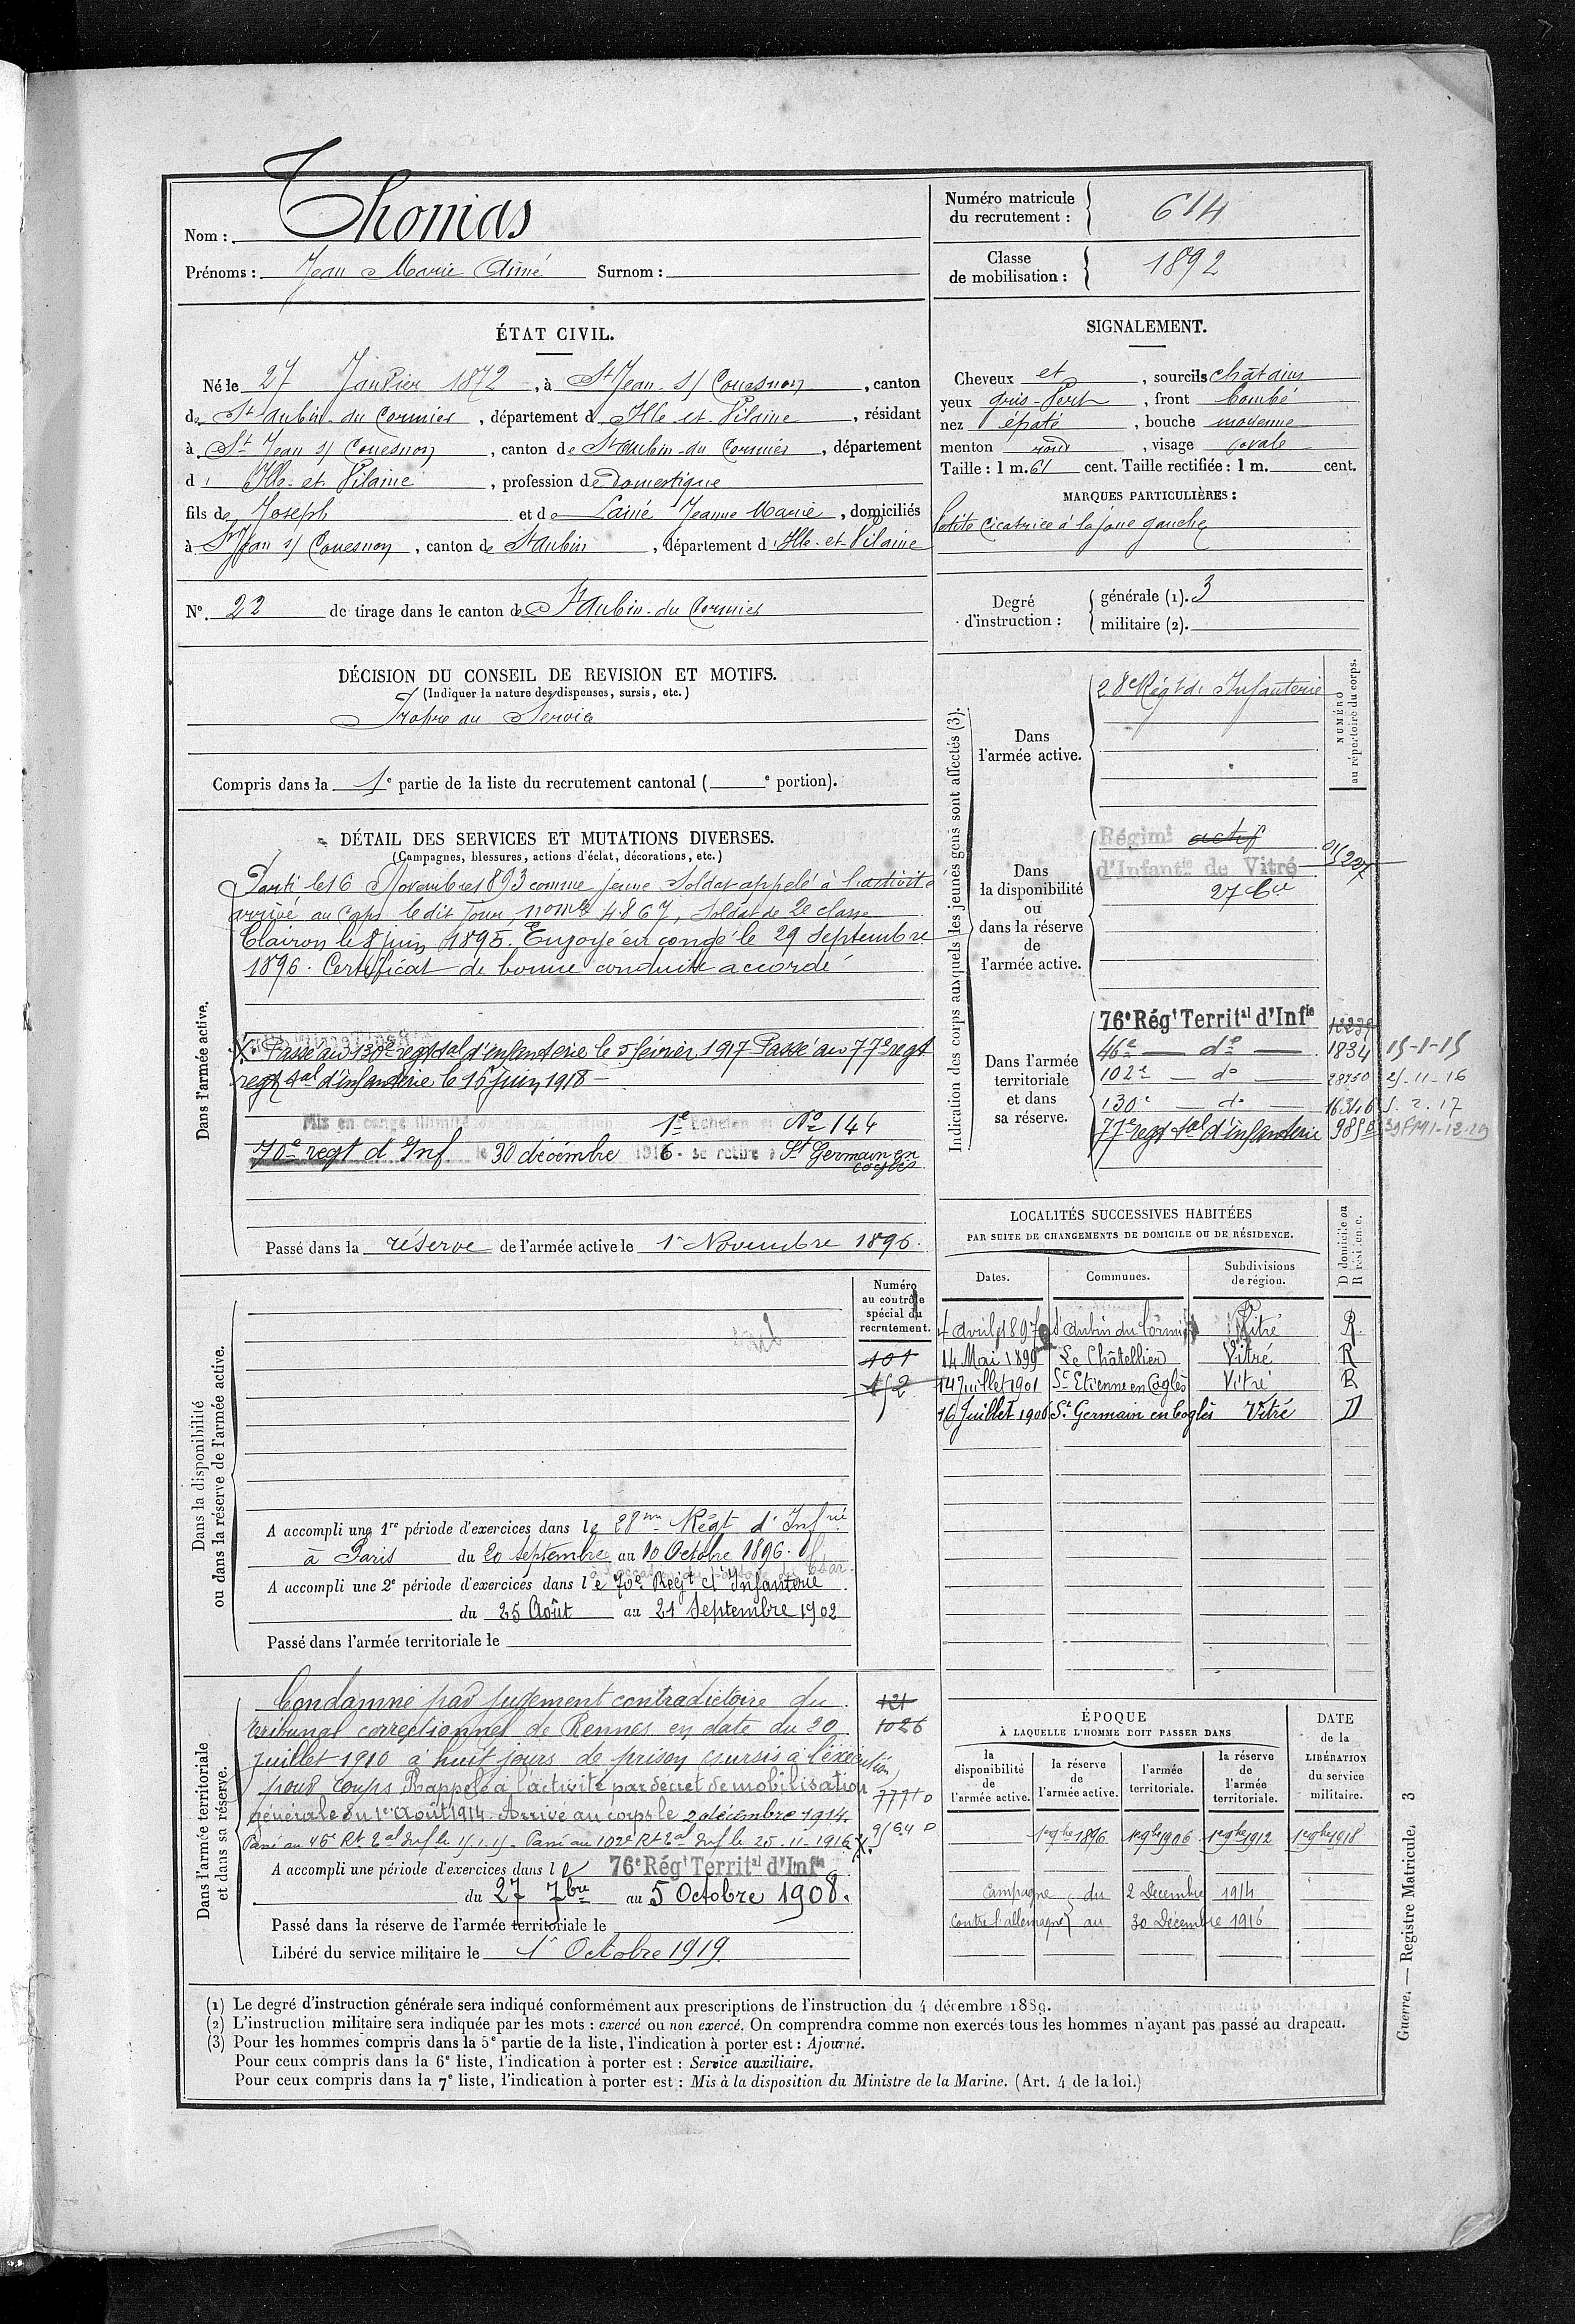 Nom : Thomas
Prénoms : Jean Marie Aimé Surnom :
Numéro matricule
du recrutement : 614
Classe
de mobilisation : 1892
ÉTAT CIVIL.
Né le 27 Janvier 1872, à St Jean s/ Couesnon, canton
de St Aubin du Cormier, département d Ille et Vilaine, résidant
à St Jean s/ Couesnon, canton de St Aubin du Cormier, département
d Ille et Vilaine, profession de Domestique
fils de Joseph et de Lainé Jeanne Marie, domiciliés
à St Jean s/ Couesnon, canton de St Aubin, département d Ille-et-Vilaine
N° 22 de tirage dans le canton de St Aubin du Cormier
SIGNALEMENT.
Cheveux et , sourcils châtains
yeux gris-vert , front bombé
nez épaté , bouche moyenne
menton rond , visage ovale
Taille : 1 m. 61 cent. Taille rectifiée : 1 m. cent.
MARQUES PARTICULIÈRES :
Petite cicatrice à la joue gauche
Degré
d'instruction :
générale (1). 3
militaire (2).
DÉCISION DU CONSEIL DE REVISION ET MOTIFS.
(Indiquer la nature des dispenses, sursis, etc.)
Propre au Service
Compris dans la 1e partie de la liste du recrutement cantonal ( e portion).
DÉTAIL DES SERVICES ET MUTATIONS DIVERSES.
(Campagnes, blessures, actions d'éclat, décorations, etc.)
Dans l'armée active.
Parti le 16 Novembre 1893 comme jeune Soldat appelé à l'activité
arrivé au Corps le dit jour, no mle 4867, Soldat de 2e classe
Clairon le 8 juin 1895. Envoyé en congé le 29 Septembre
1896. Certificat de bonne conduite accordé
X. Passé au 130e regt tal d'infanterie le 5 février 1917 Passé au 77e regt
regt tal d'infanterie le 16 juin 1918 -
Mis en congé illimité 1e Echelon No 144
70e regt d'Inf le 30 décembre 1916 - se retire à St Germain en
Coglès
Passé dans la réserve de l'armée active le 1r Novembre 1896.
Indication des corps auxquels les jeunes gens sont affectés (3).
NUMÉRO
au répertoire du corps.
Dans
l'armée active.
28e Régt de Infanterie
Dans
la disponibilité
ou
dans la réserve
de
l'armée active.
Régimt actif
d'Infantie de Vitré
Dans l'armée
territoriale
et dans
sa réserve.
76e Régt Territal d'Infie
46e — do — 1834 15-1-15
102e — do — 28750 25-11-16
130e — do — 16346 5.2.17
77e regt tal d'infanterie
LOCALITÉS SUCCESSIVES HABITÉES
PAR SUITE DE CHANGEMENTS DE DOMICILE OU DE RÉSIDENCE.
Dates. Communes. Subdivisions
de région. D domicile ou
R résidence.
4 avril 1897 St Aubin du Cormier Vitré R
14 Mai 1899 Le Châtellier Vitré R
14 Juillet 1901 St Etienne en Coglès Vitré R
16 Juillet 1906 St Germain en Coglès Vitré D
Dans la disponibilité
ou dans la réserve de l'armée active.
Numéro
au contrôle
spécial du
recrutement.
101
152
A accompli une 1re période d'exercices dans le 28me Régt d'Infrie
à Paris du 20 septembre au 10 Octobre 1896.
A accompli une 2e période d'exercices dans le 70e Regt d'Infanterie
du 25 Août au 21 Septembre 1902
Passé dans l'armée territoriale le
Dans l'armée territoriale
et dans sa réserve.
Condamné par jugement contradictoire du
tribunal correctionnel de Rennes en date du 20
juillet 1910 à huit jours de prison sursis à l'exécution
pour coups Rappelé à l'activité par décret de mobilisation
générale du 1er Août 1914. Arrivé au corps le 2 décembre 1914.
Passé au 46e Rt Tal d'inf le 15.1.15. Passé au 102e Rt Tal d'inf le 25.11.1916 X.
121
1026
A accompli une période d'exercices dans le 76e Régt Territal d'Infie
du 27 7bre au 5 Octobre 1908.
Passé dans la réserve de l'armée territoriale le
Libéré du service militaire le 1r Octobre 1919
ÉPOQUE
À LAQUELLE L'HOMME DOIT PASSER DANS
DATE
de la
LIBÉRATION
du service
militaire.
la
disponibilité
de
l'armée active.
la réserve
de
l'armée active.
l'armée
territoriale.
la réserve
de
l'armée
territoriale.
1er 9bre 1896 1er 9bre 1906 1er 9bre 1912 1er 9bre 1918
Campagne du 2 Decembre 1914
contre l'allemagne au 30 Décembre 1916
(1) Le degré d'instruction générale sera indiqué conformément aux prescriptions de l'instruction du 4 décembre 1889.
(2) L'instruction militaire sera indiquée par les mots : exercé ou non exercé. On comprendra comme non exercés tous les hommes n'ayant pas passé au drapeau.
(3) Pour les hommes compris dans la 5e partie de la liste, l'indication à porter est : Ajourné.
Pour ceux compris dans la 6e liste, l'indication à porter est : Service auxiliaire.
Pour ceux compris dans la 7e liste, l'indication à porter est : Mis à la disposition du Ministre de la Marine. (Art. 4 de la loi.)
Guerre. — Registre Matricule. 3